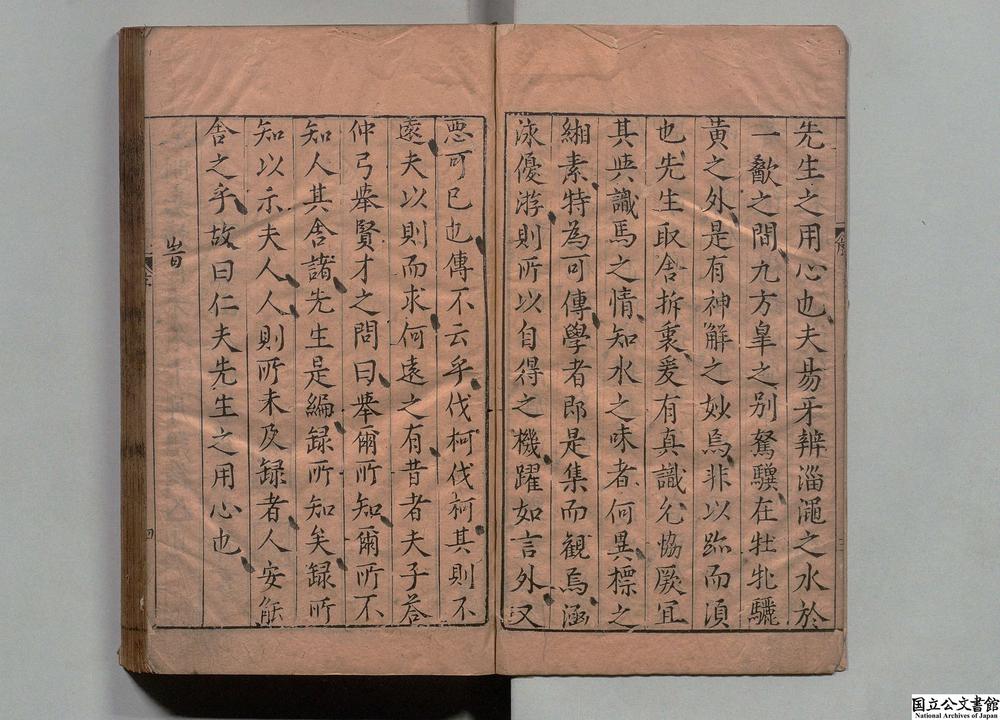 先生之用心也夫易牙辨淄澠之水於
一歃之間九方皐之別駑驥在牡牝驪
黄之外是有神解之妙焉非以跡而湏
也先生取舍折衷爰有真識允恊厥宜
其與識馬之情知水之味者何異標之
緗素特為可傳學者即是集而観焉涵
泳優游則所以自得之機躍如言外又
悪可已也傳不云乎伐柯伐柯其則不
遠夫以則而求何遠之有昔者夫子荅
仲弓舉賢才之問曰舉爾所知爾所不
知人其舍諸先生是編録所知矣録所
知以示夫人人則所未及録者人安能
舍之乎故曰仁夫先生之用心也
旹
四
国立公文書館
National Archives of Japan